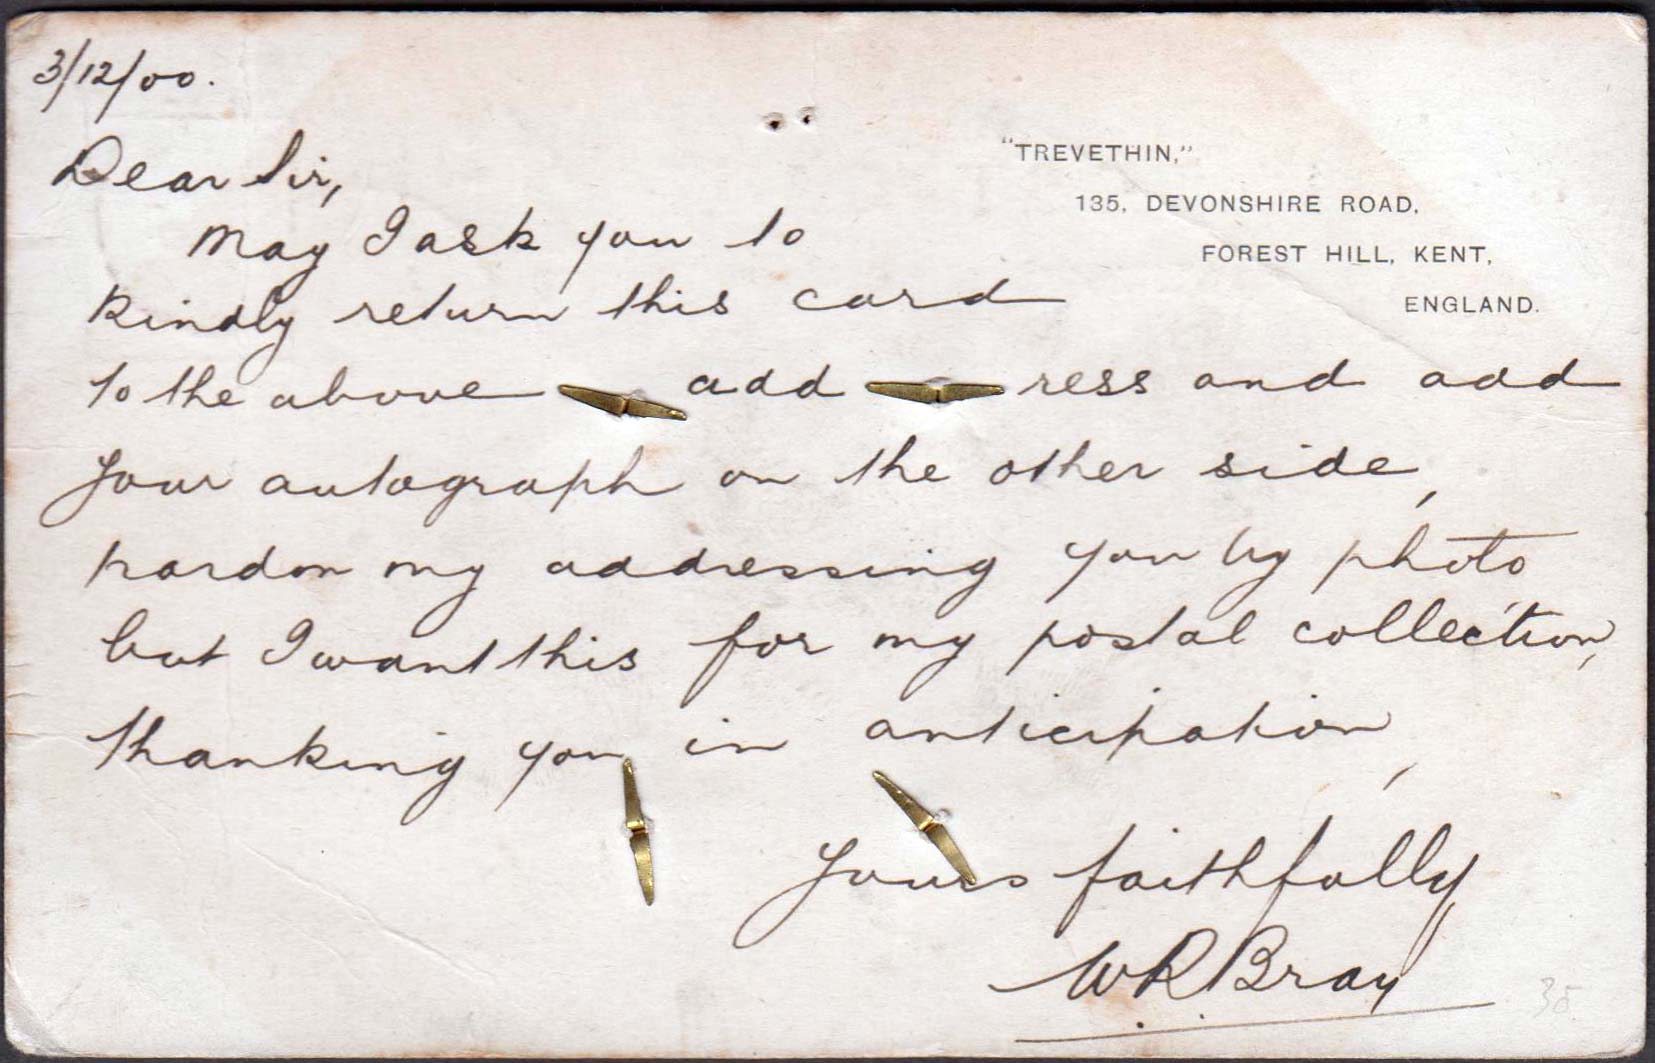 3/12/00.
"TREVETHIN,"
135, DEVONSHIRE ROAD,
FOREST HILL, KENT,
ENGLAND.
Dear Sir,
May I ask you to
kindly return this card
to the above add ress and add
your autograph on the other side,
pardon my addressing you by photo
but I want this for my postal collection,
thanking you in anticipation,
Yours faithfully
WR Bray
35